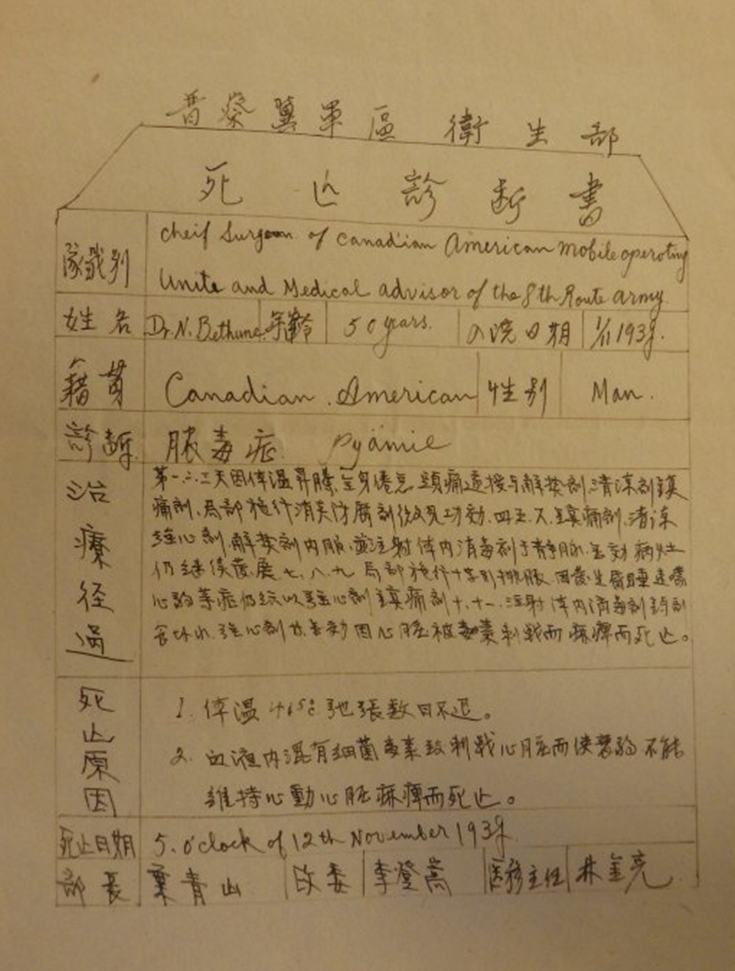 晋察冀軍區 衛生部
死亡診断書
隊職别 cheif Surgeon of Canadian American mobile operating
Unite and Medical advisor of the 8th Route army
姓名 Dr. N. Bethune 年齡 50 years. 入院日期 1/11 1939.
籍貫 Canadian. American 性别 Man.
診断 脓毒症 Pyämie
治療径過
第一.二.三天因体温昇騰.全身倦怠.頭痛送接与解热剂.清凉剂鎮
痛剂.局部施行消炎防腐剂
強心剂.解热剂内服.並注射体内消毒剂于静脉.無効病灶
仍继续發展.七.八.九局部施行十字形排脓
鎮痛剂十.十一.注射体内消毒剂
強心剂 無効因心臟被毒素刺戟而痳痺而死亡。
死亡原因
1. 体温 41.5℃ 弛張数日不退。
2. 血液内混有细菌毒素致刺戟心臟而使衰弱不能
維持心動心脏痳痺而死亡。
死亡日期 5. o'clock of 12th November 1939.
部長 葉青山 政委 李登嵩 医務主任 林金亮